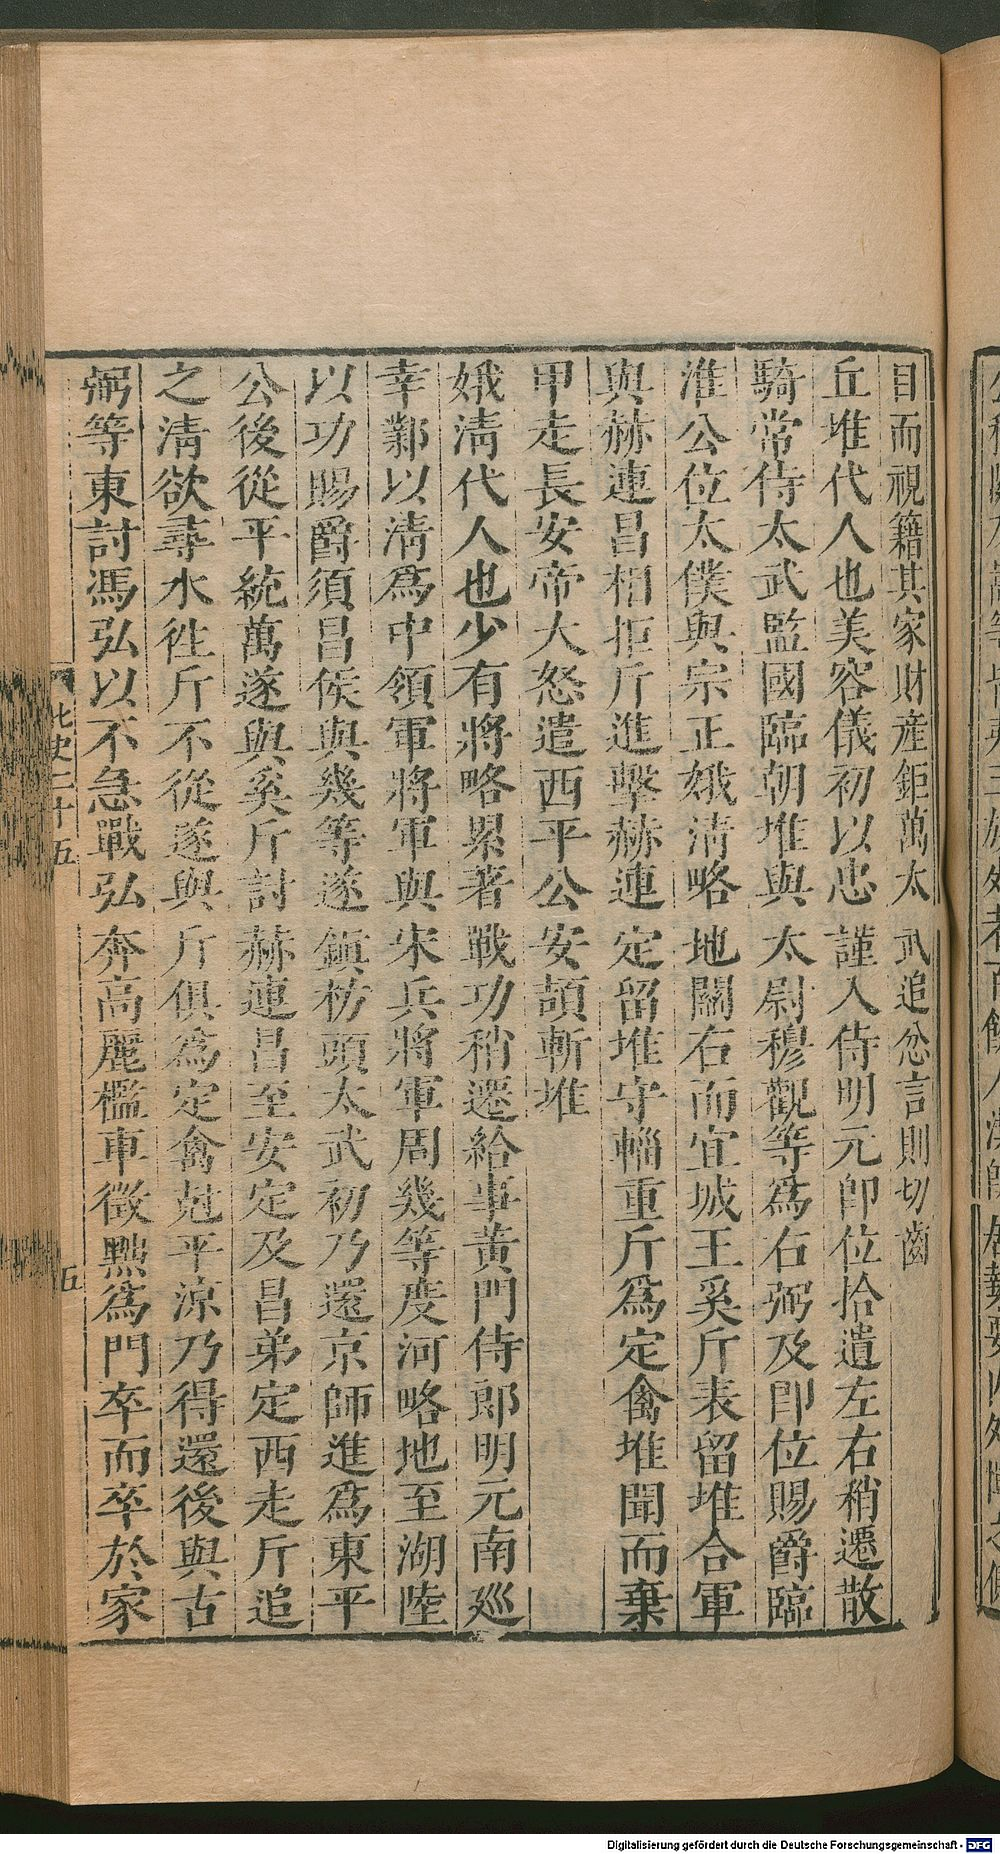 目而視籍其家財產鉅萬太武追忿言則切齒
丘堆代人也美容儀初以忠謹入侍明元卽位拾遺左右稍遷散
騎常侍太武監國臨朝堆與太尉穆觀等爲右弼及卽位賜爵臨
淮公位太僕與宗正娥清略地關右而宜城王奚斤表留堆合軍
與赫連昌相拒斤進擊赫連定留堆守輜重斤爲定禽堆聞而棄
甲走長安帝大怒遣西平公安頡斬堆
娥清代人也少有將略累著戰功稍遷給事黃門侍郎明元南巡
幸鄴以清爲中領軍將軍與宋兵將軍周幾等度河略地至湖陸
以功賜爵須昌侯與幾等遂鎭枋頭太武初乃還京師進爲東平
公後從平統萬遂與奚斤討赫連昌至安定及昌弟定西走斤追
之清欲尋水徃斤不從遂與斤俱爲定禽尅平涼乃得還後與古
弼等東討馮弘以不急戰弘奔高麗檻車徵黜爲門卒而卒於家
北史二十五
五
Digitalisierung gefördert durch die Deutsche Forschungsgemeinschaft - DFG